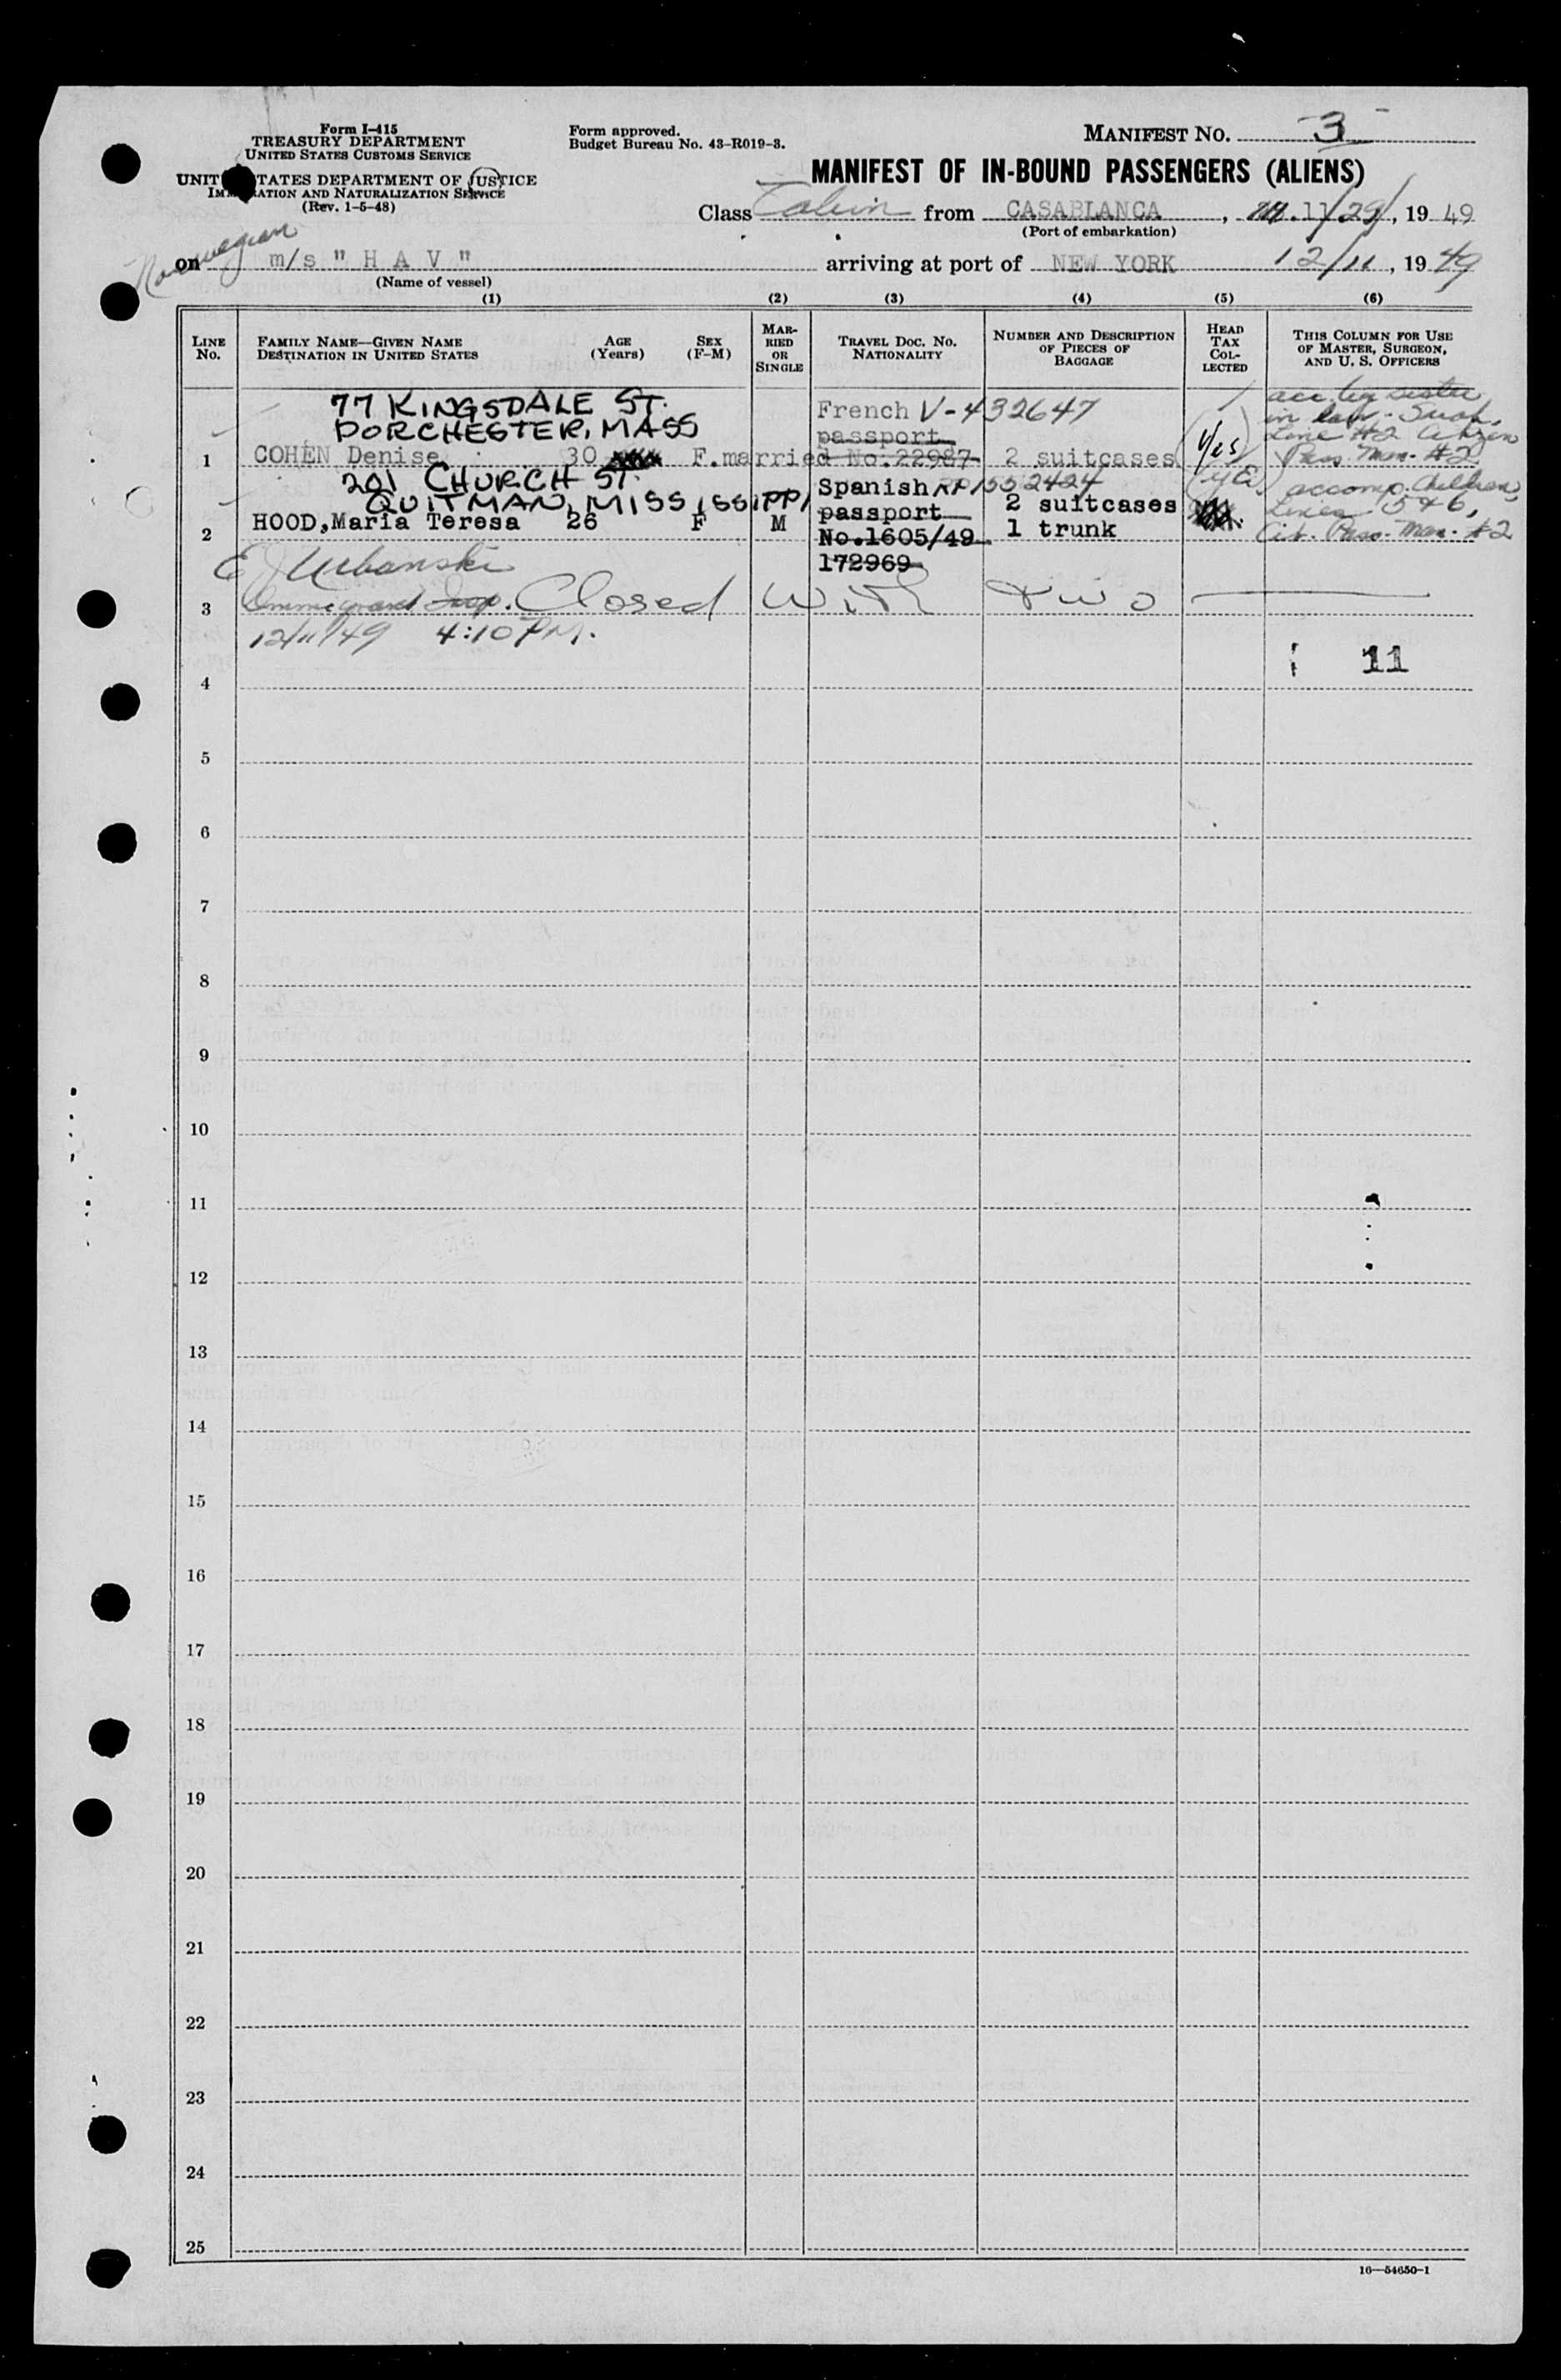 Form I-415
TREASURY DEPARTMENT
UNITED STATES CUSTOMS SERVICE
UNITED STATES DEPARTMENT OF JUSTICE
IMMIGRATION AND NATURALIZATION SERVICE
(Rev. 1-5-48)
Form approved.
Budget Bureau No. 43-R019-3.
MANIFEST NO. 3
MANIFEST OF IN-BOUND PASSENGERS (ALIENS)
Class Cabin from CASABLANCA, 11/29/, 19 49
(Port of embarkation)
Norwegian
on m/s " H A V " arriving at port of NEW YORK 12/11, 19 49
(Name of vessel)
(1) (2) (3) (4) (5) (6)
LINE NO.
FAMILY NAME—GIVEN NAME
DESTINATION IN UNITED STATES
AGE (Years)
SEX (F-M)
MARRIED OR SINGLE
TRAVEL DOC. NO. NATIONALITY
NUMBER AND DESCRIPTION OF PIECES OF BAGGAGE
HEAD TAX COLLECTED
THIS COLUMN FOR USE OF MASTER, SURGEON, AND U. S. OFFICERS
77 KINGSDALE ST.
DORCHESTER, MASS
French V-432647
passport
1 COHEN Denise 30 F. married No. 22987 2 suitcases (Yes)
acc by sister
in law - Line #2 Citizen
Pass. Man. #2
201 CHURCH ST.
QUITMAN, MISSISSIPPI
Spanish RP1552424
passport
2 HOOD, Maria Teresa 26 F M No.1605/49
172969
2 suitcases
1 trunk
accomp. Children
Lines 5+6,
Cit. Pass. Man. #2
E J Urbanski
3 Immigrant Insp. Closed with two
12/11/49 4:10 PM.
11
4
5
6
7
8
9
10
11
12
13
14
15
16
17
18
19
20
21
22
23
24
25
16—54650-1